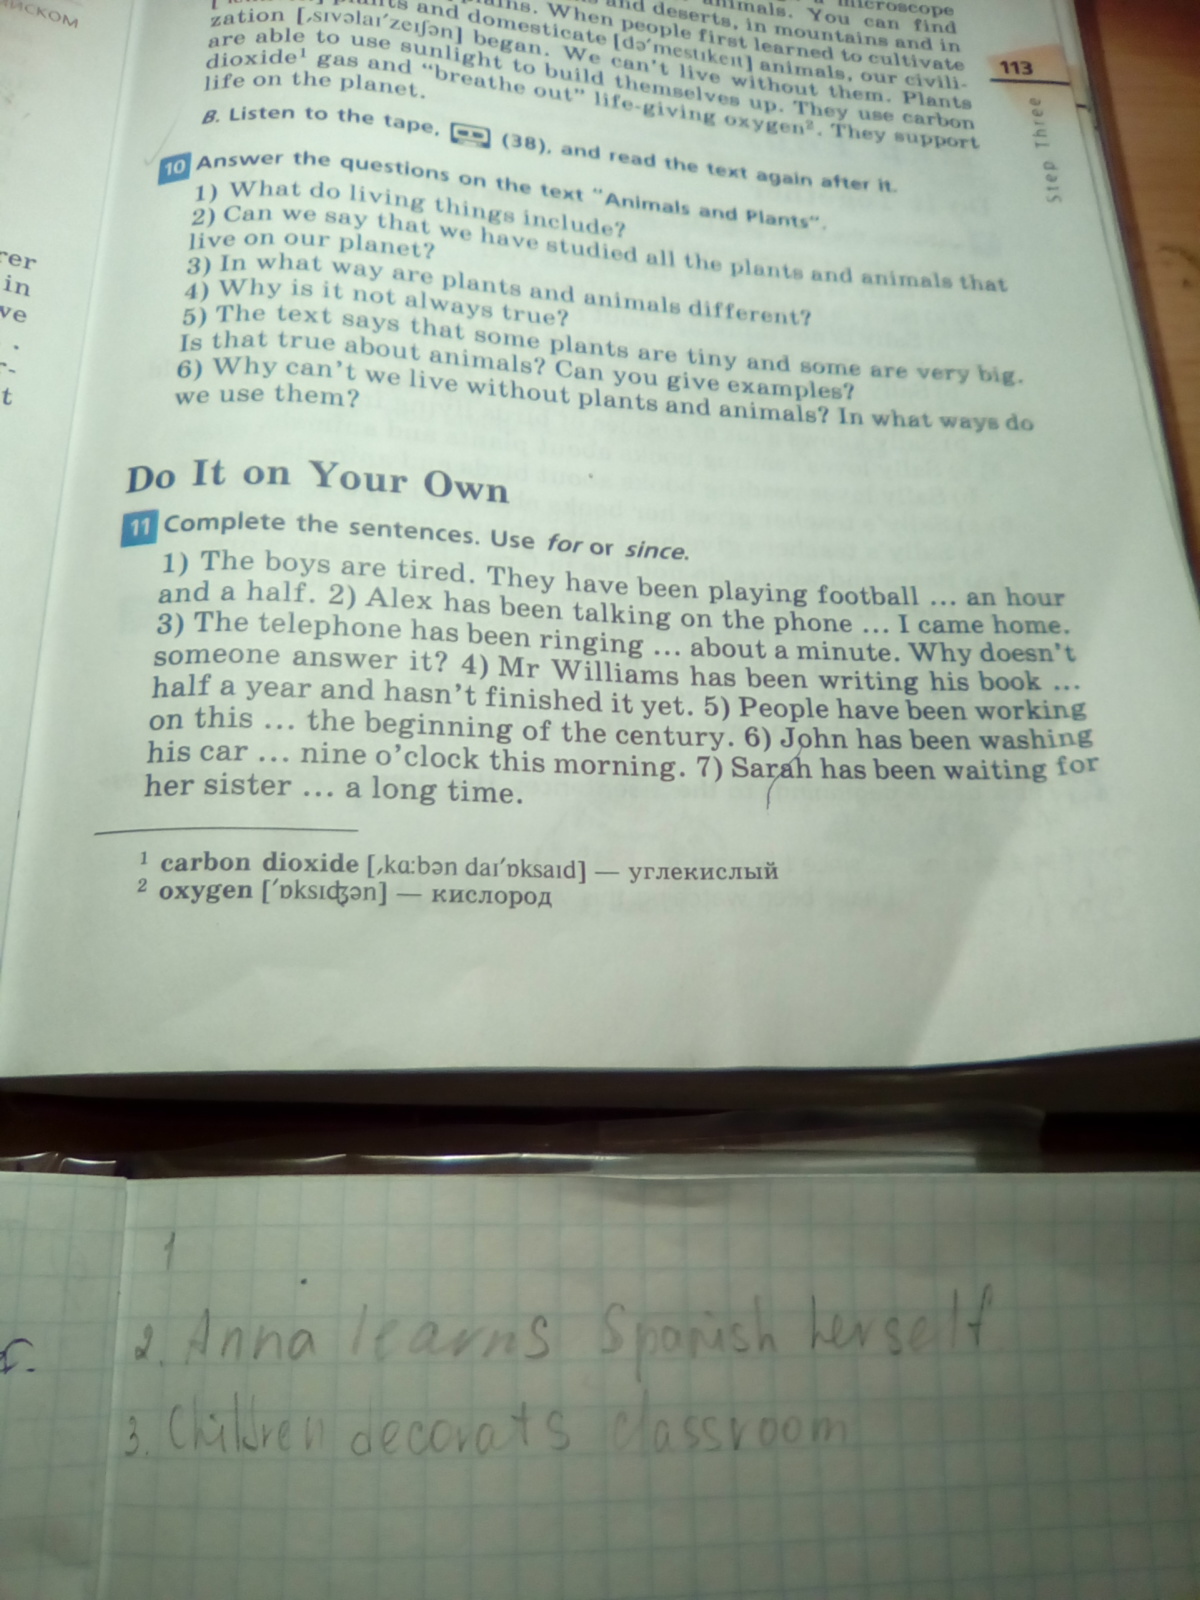 ИЙСКОМ
microscope
plants and deserts, in mountains and in
zation [ˌsɪvəlaɪˈzeɪʃən] began. We can't live without them. Plants
are able to use sunlight to build themselves up. They use carbon
dioxide¹ gas and "breathe out" life-giving oxygen². They support
life on the planet.
B. Listen to the tape, (38), and read the text again after it.
10 Answer the questions on the text "Animals and Plants".
1) What do living things include?
2) Can we say that we have studied all the plants and animals that
live on our planet?
3) In what way are plants and animals different?
4) Why is it not always true?
5) The text says that some plants are tiny and some are very big.
Is that true about animals? Can you give examples?
6) Why can't we live without plants and animals? In what ways do
we use them?
Do It on Your Own
11 Complete the sentences. Use for or since.
1) The boys are tired. They have been playing football ... an hour
and a half. 2) Alex has been talking on the phone ... I came home.
3) The telephone has been ringing ... about a minute. Why doesn't
someone answer it? 4) Mr Williams has been writing his book ...
half a year and hasn't finished it yet. 5) People have been working
on this ... the beginning of the century. 6) John has been washing
his car ... nine o'clock this morning. 7) Sarah has been waiting for
her sister ... a long time.
¹ carbon dioxide [ˌkɑːbən daɪˈɒksaɪd] — углекислый
² oxygen [ˈɒksɪʤən] — кислород
113
Step Three
rer
in
ve
.
r-
t
1
2. Anna learns Spanish herself
3. Children decorats classroom